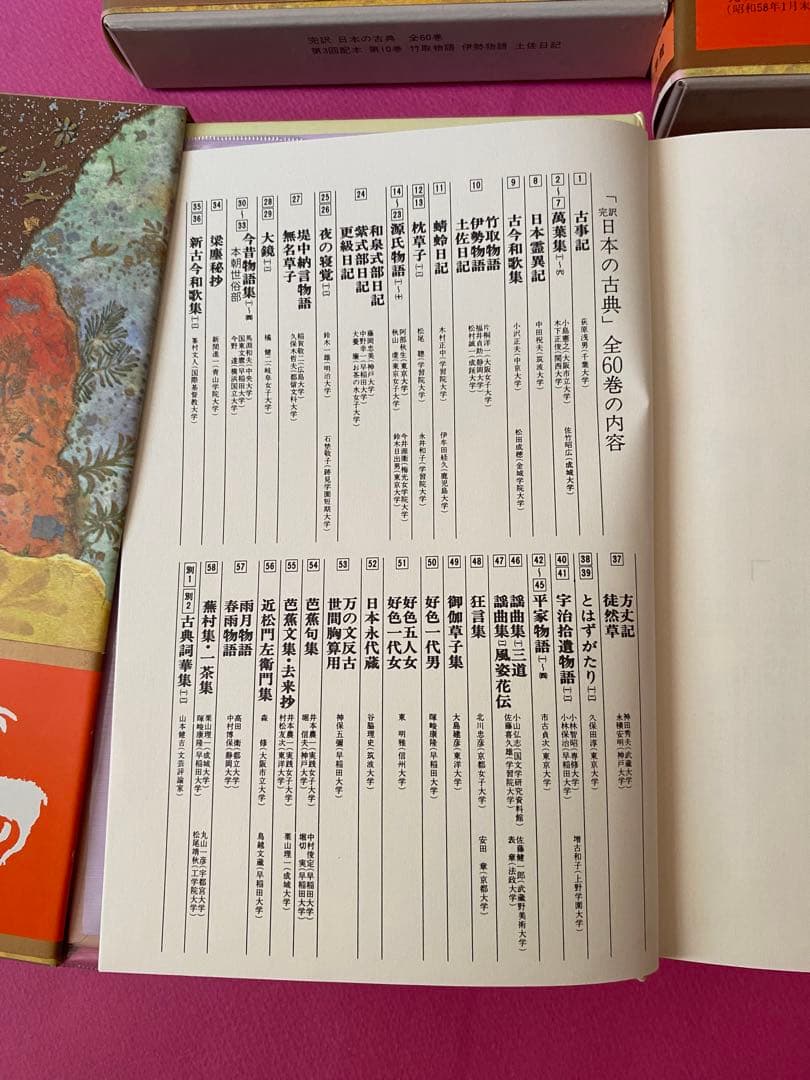 完訳 日本の古典 全60巻
第3回配本 第10巻 竹取物語 伊勢物語 土佐日記
(昭和58年1月末
「完訳日本の古典」全60巻の内容
1 古事記 荻原浅男(千葉大学)
2～7 萬葉集[一～六] 小島憲之(大阪市立大学) 木下正俊(関西大学) 佐竹昭広(成城大学)
8 日本霊異記 中田祝夫(筑波大学)
9 古今和歌集 小沢正夫(中京大学) 松田成穂(金城学院大学)
10 竹取物語 伊勢物語 土佐日記 片桐洋一(大阪女子大学) 福井貞助(静岡大学) 松村誠一(成蹊大学)
11 蜻蛉日記 木村正中(学習院大学) 伊牟田経久(鹿児島大学)
12 13 枕草子[一二] 松尾聰(学習院大学) 永井和子(学習院大学)
14～23 源氏物語[一～十] 阿部秋生(東京大学) 秋山虔(東京女子大学) 今井源衛(梅光女学院大学) 鈴木日出男(東京大学)
24 和泉式部日記 紫式部日記 更級日記 藤岡忠美(神戸大学) 中野幸一(早稲田大学) 犬養廉(お茶の水女子大学)
25 26 夜の寝覚[一二] 鈴木一雄(明治大学) 石埜敬子(跡見学園短期大学)
27 堤中納言物語 無名草子 稲賀敬二(広島大学) 久保木哲夫(都留文科大学)
28 29 大鏡[一二] 橘健二(岐阜女子大学)
30～33 今昔物語集[一～四] 本朝世俗部 馬淵和夫(中央大学) 国東文麿(早稲田大学) 今野達(横浜国立大学)
34 梁塵秘抄 新間進一(青山学院大学)
35 36 新古今和歌集[一二] 峯村文人(国際基督教大学)
37 方丈記 徒然草 神田秀夫(武蔵大学) 永積安明(神戸大学)
38 39 とはずがたり[一二] 久保田淳(東京大学)
40 41 宇治拾遺物語[一二] 小林智昭(専修大学) 小林保治(早稲田大学) 増古和子(上野学園大学)
42～45 平家物語[一～四] 市古貞次(東京大学)
46 謡曲集[一]三道
47 謡曲集[二]風姿花伝 小山弘志(国文学研究資料館) 佐藤喜久雄(学習院大学) 佐藤健一郎(武蔵野美術大学) 表章(法政大学)
48 狂言集 北川忠彦(京都女子大学) 安田章(京都大学)
49 御伽草子集 大島建彦(東洋大学)
50 好色一代男 暉峻康隆(早稲田大学)
51 好色五人女 好色一代女 東明雅(信州大学)
52 日本永代蔵 谷脇理史(筑波大学)
53 万の文反古 世間胸算用 神保五彌(早稲田大学)
54 芭蕉句集 井本農一(実践女子大学) 堀信夫(神戸大学) 中村俊定(早稲田大学) 堀切実(早稲田大学)
55 芭蕉文集・去来抄 井本農一(実践女子大学) 村松友次(東洋大学) 栗山理一(成城大学)
56 近松門左衛門集 森修(大阪市立大学) 鳥越文蔵(早稲田大学)
57 雨月物語 春雨物語 高田衛(都立大学) 中村博保(静岡大学)
58 蕪村集・一茶集 栗山理一(成城大学) 暉峻康隆(早稲田大学) 丸山一彦(宇都宮大学) 松尾靖秋(工学院大学)
別1 別2 古典詞華集[一二] 山本健吉(文芸評論家)